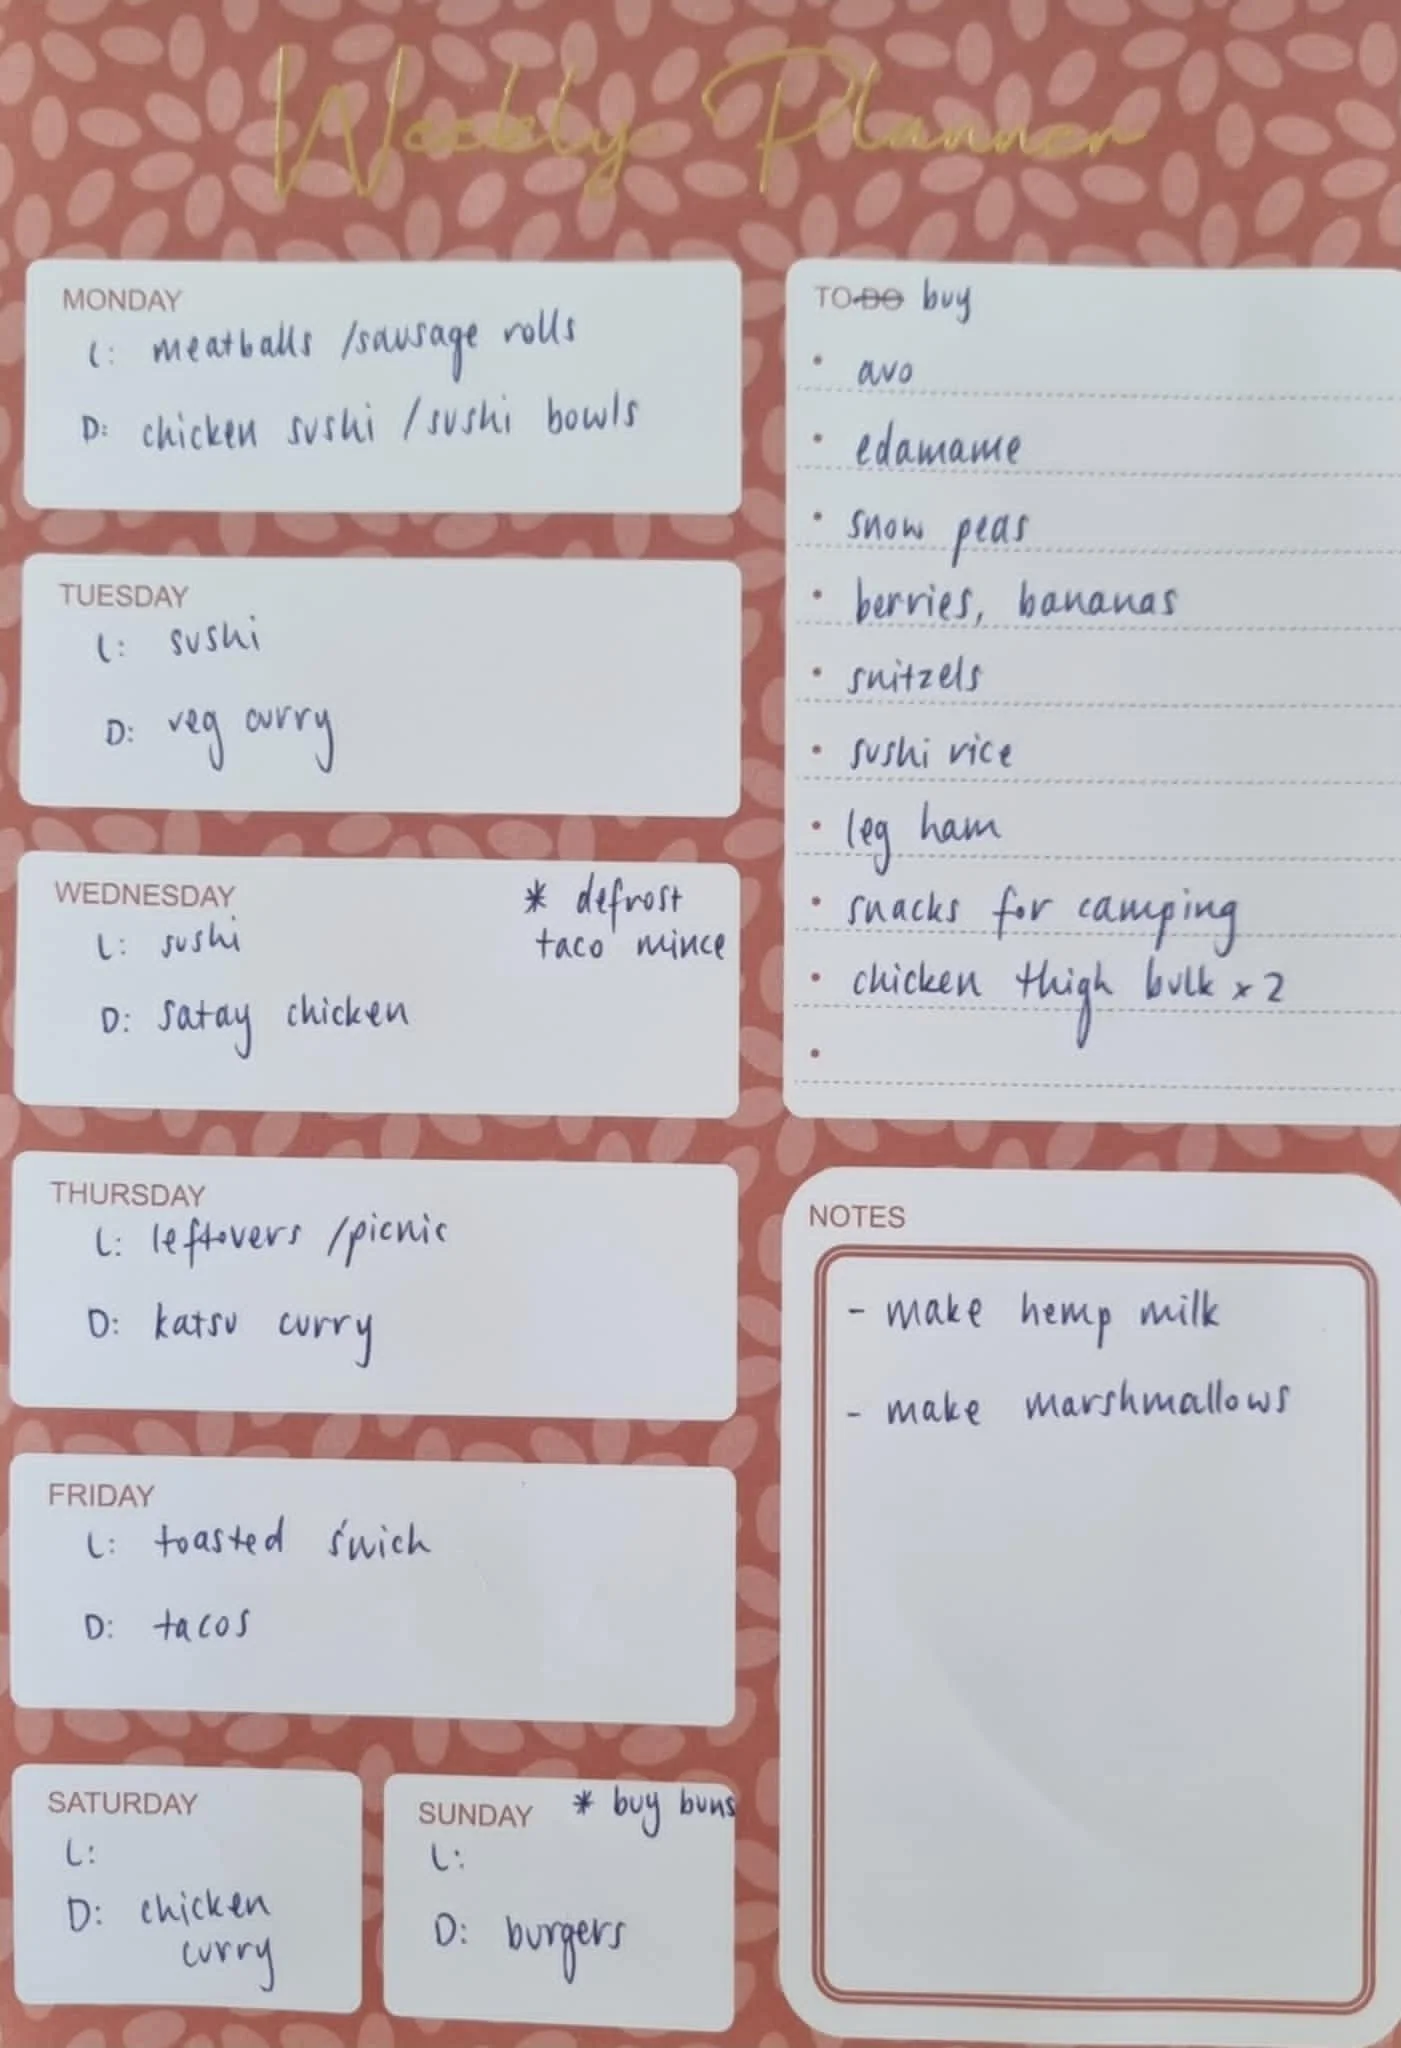 Weekly Planner
MONDAY
L: meatballs /sausage rolls
D: chicken sushi /sushi bowls
TUESDAY
L: sushi
D: veg curry
WEDNESDAY
* defrost
taco mince
L: sushi
D: satay chicken
THURSDAY
L: leftovers /picnic
D: katsu curry
FRIDAY
L: toasted s'wich
D: tacos
SATURDAY
L:
D: chicken
curry
SUNDAY * buy buns
L:
D: burgers
TO DO buy
• avo
• edamame
• snow peas
• berries, bananas
• snitzels
• sushi rice
• leg ham
• snacks for camping
• chicken thigh bulk x 2
•
NOTES
- make hemp milk
- make marshmallows